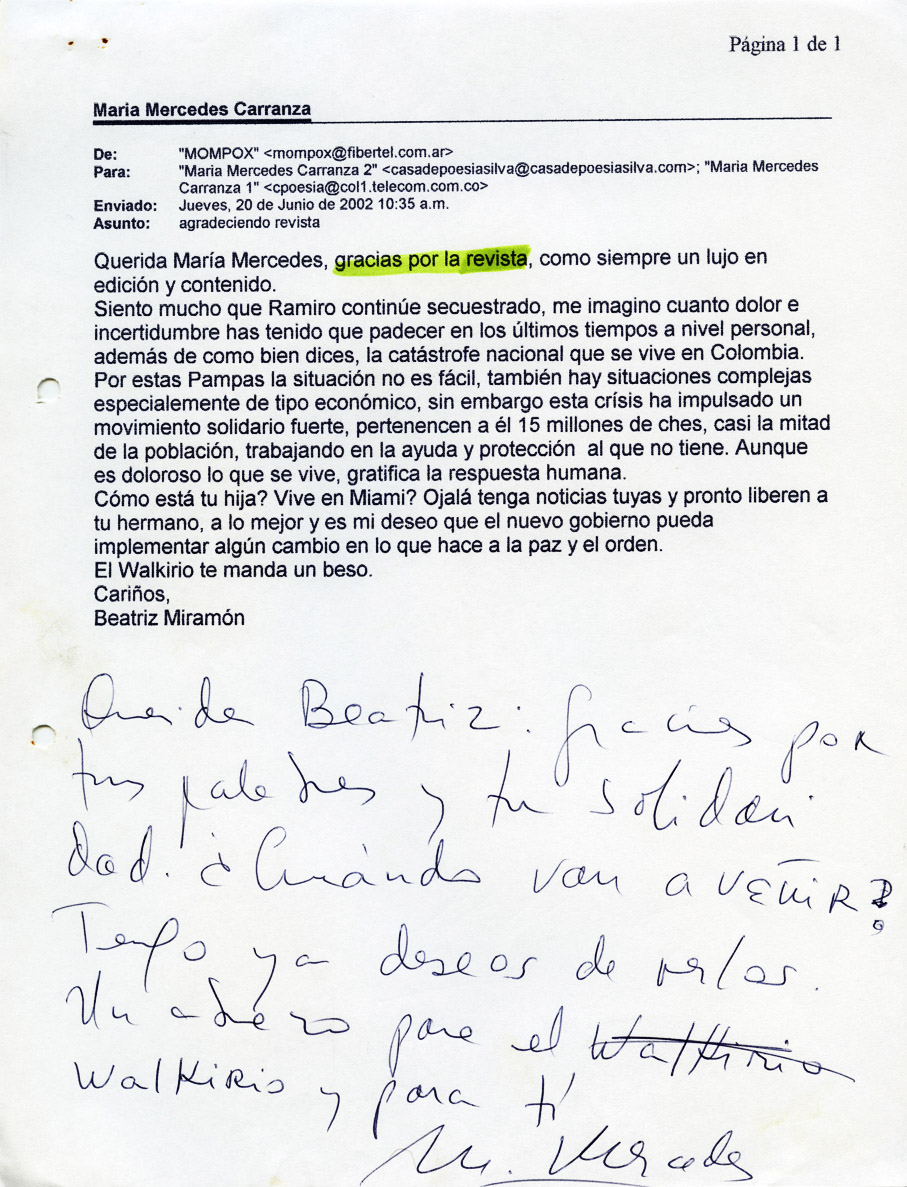 Página 1 de 1
Maria Mercedes Carranza
De: "MOMPOX" <mompox@fibertel.com.ar>
Para: "Maria Mercedes Carranza 2" <casadepoesiasilva@casadepoesiasilva.com>; "Maria Mercedes
Carranza 1" <cpoesia@col1.telecom.com.co>
Enviado: Jueves, 20 de Junio de 2002 10:35 a.m.
Asunto: agradeciendo revista
Querida María Mercedes, gracias por la revista, como siempre un lujo en
edición y contenido.
Siento mucho que Ramiro continúe secuestrado, me imagino cuanto dolor e
incertidumbre has tenido que padecer en los últimos tiempos a nivel personal,
además de como bien dices, la catástrofe nacional que se vive en Colombia.
Por estas Pampas la situación no es fácil, también hay situaciones complejas
especialemente de tipo económico, sin embargo esta crísis ha impulsado un
movimiento solidario fuerte, pertenencen a él 15 millones de ches, casi la mitad
de la población, trabajando en la ayuda y protección al que no tiene. Aunque
es doloroso lo que se vive, gratifica la respuesta humana.
Cómo está tu hija? Vive en Miami? Ojalá tenga noticias tuyas y pronto liberen a
tu hermano, a lo mejor y es mi deseo que el nuevo gobierno pueda
implementar algún cambio en lo que hace a la paz y el orden.
El Walkirio te manda un beso.
Cariños,
Beatriz Miramón
Querida Beatriz: gracias por
tus palabras y tu solidari
dad. ¿Cuándo van a venir?
Tengo ya deseos de verlos.
Un abrazo para el Walkirio
Walkirio y para tí
M. Mercedes